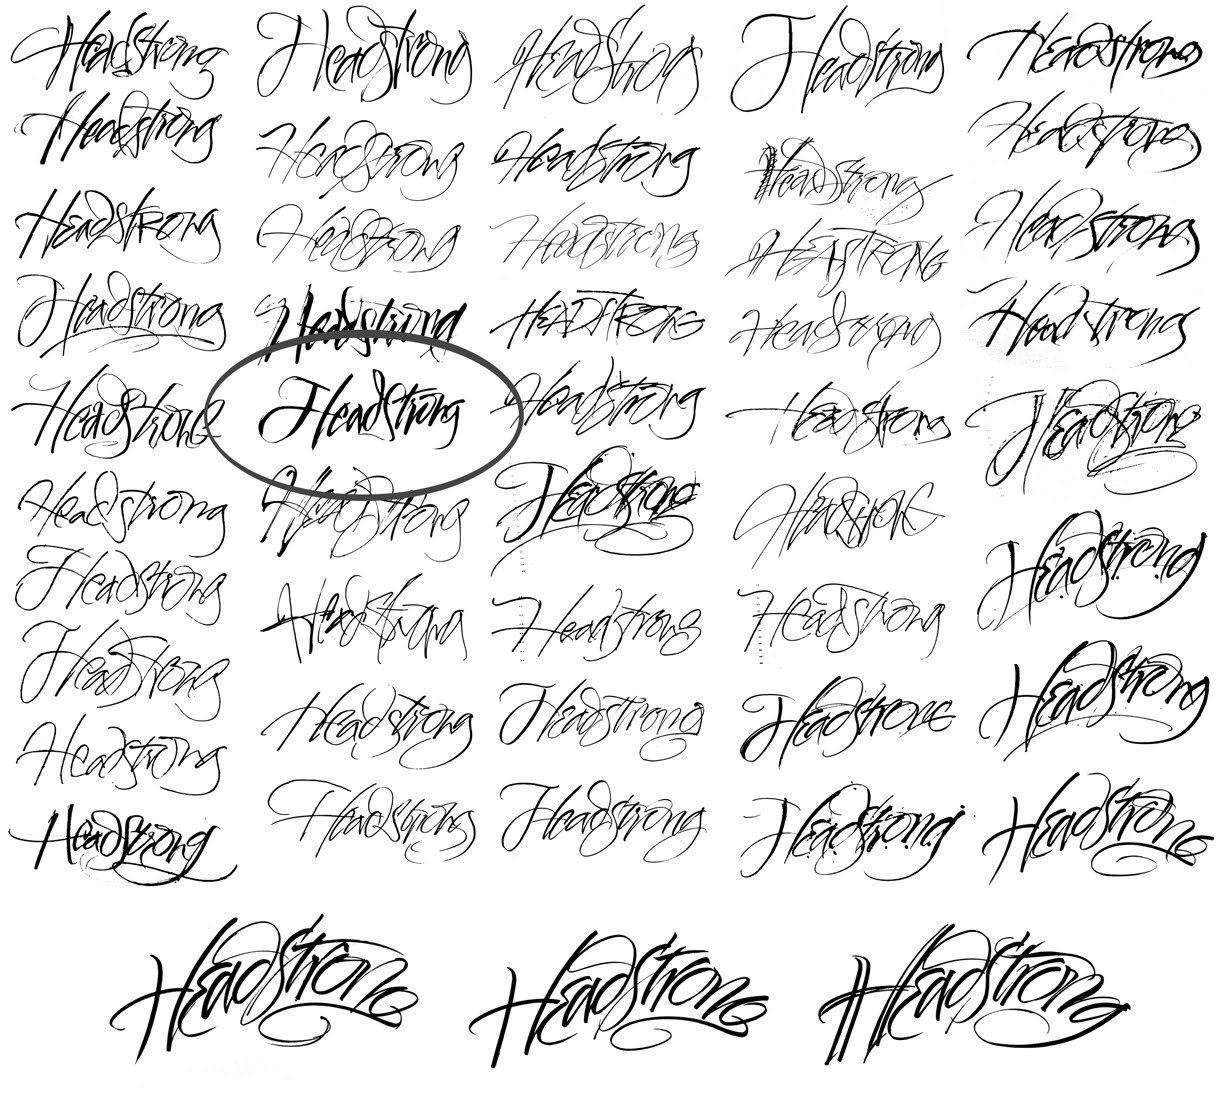 Headstrong Headstrong Headstrong Headstrong Headstrong
Headstrong Headstrong Headstrong Headstrong Headstrong
Headstrong Headstrong Headstrong HEADSTRONG Headstrong
Headstrong Headstrong HEADSTRONG Headstrong Headstrong
Headstrong Headstrong Headstrong Headstrong Headstrong
Headstrong Headstrong Headstrong Headstrong Headstrong
Headstrong Headstrong Headstrong Headstrong Headstrong
Headstrong Headstrong Headstrong Headstrong Headstrong
Headstrong Headstrong Headstrong Headstrong
Headstrong
Headstrong Headstrong Headstrong